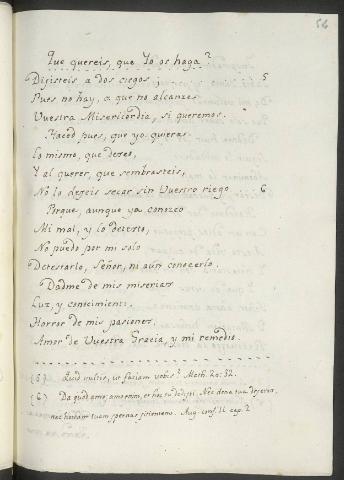 56
Que quereis, que Yo os haga?
Dijisteis, a dos ciegos; 5
Pues no hay, a que no alcanze
Vuestra Misericordia, si queremos.
Haced pues, que yo quiera
Lo mismo, que deseo,
Y al querer, que sembrasteis,
No lo dejeis secar sin Vuestro riego 6
Porque, aunque ya conozco
Mi mal, y lo detesto,
No puedo por mi solo
Detestarlo, Señor, ni aun conocerlo.
Dadme de mis miserias
Luz, y conocimiento.
Horror de mis pasiones
Amor de Vuestra Gracia, y mi remedio.
(5) Quid vultis, ut faciam vobis? Math. 20: 32.
(6) Da quod amo; amo enim, et hoc tu dedisti. Nec dona tua deseras,
nec herbam tuam spernas sitientem. Aug. conf. 11 cap. 2